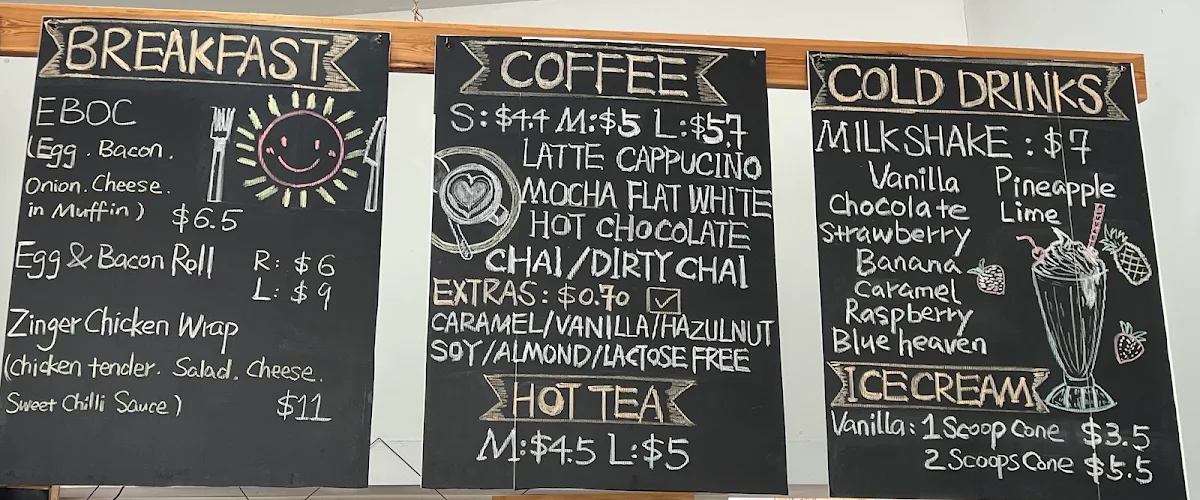 BREAKFAST
EBOC
(Egg. Bacon.
Onion. Cheese.
in Muffin) $6.5
Egg & Bacon Roll R: $6
L: $9
Zinger Chicken Wrap
(chicken tender. Salad. Cheese.
Sweet Chilli Sauce) $11
COFFEE
S: $4.4 M: $5 L: $5.7
LATTE CAPPUCINO
MOCHA FLAT WHITE
HOT CHOCOLATE
CHAI/DIRTY CHAI
EXTRAS: $0.70
CARAMEL/VANILLA/HAZULNUT
SOY/ALMOND/LACTOSE FREE
HOT TEA
M: $4.5 L: $5
COLD DRINKS
MILKSHAKE: $7
Vanilla Pineapple
Chocolate Lime
Strawberry
Banana
Caramel
Raspberry
Blue heaven
ICE CREAM
Vanilla: 1 Scoop Cone $3.5
2 Scoops Cone $5.5